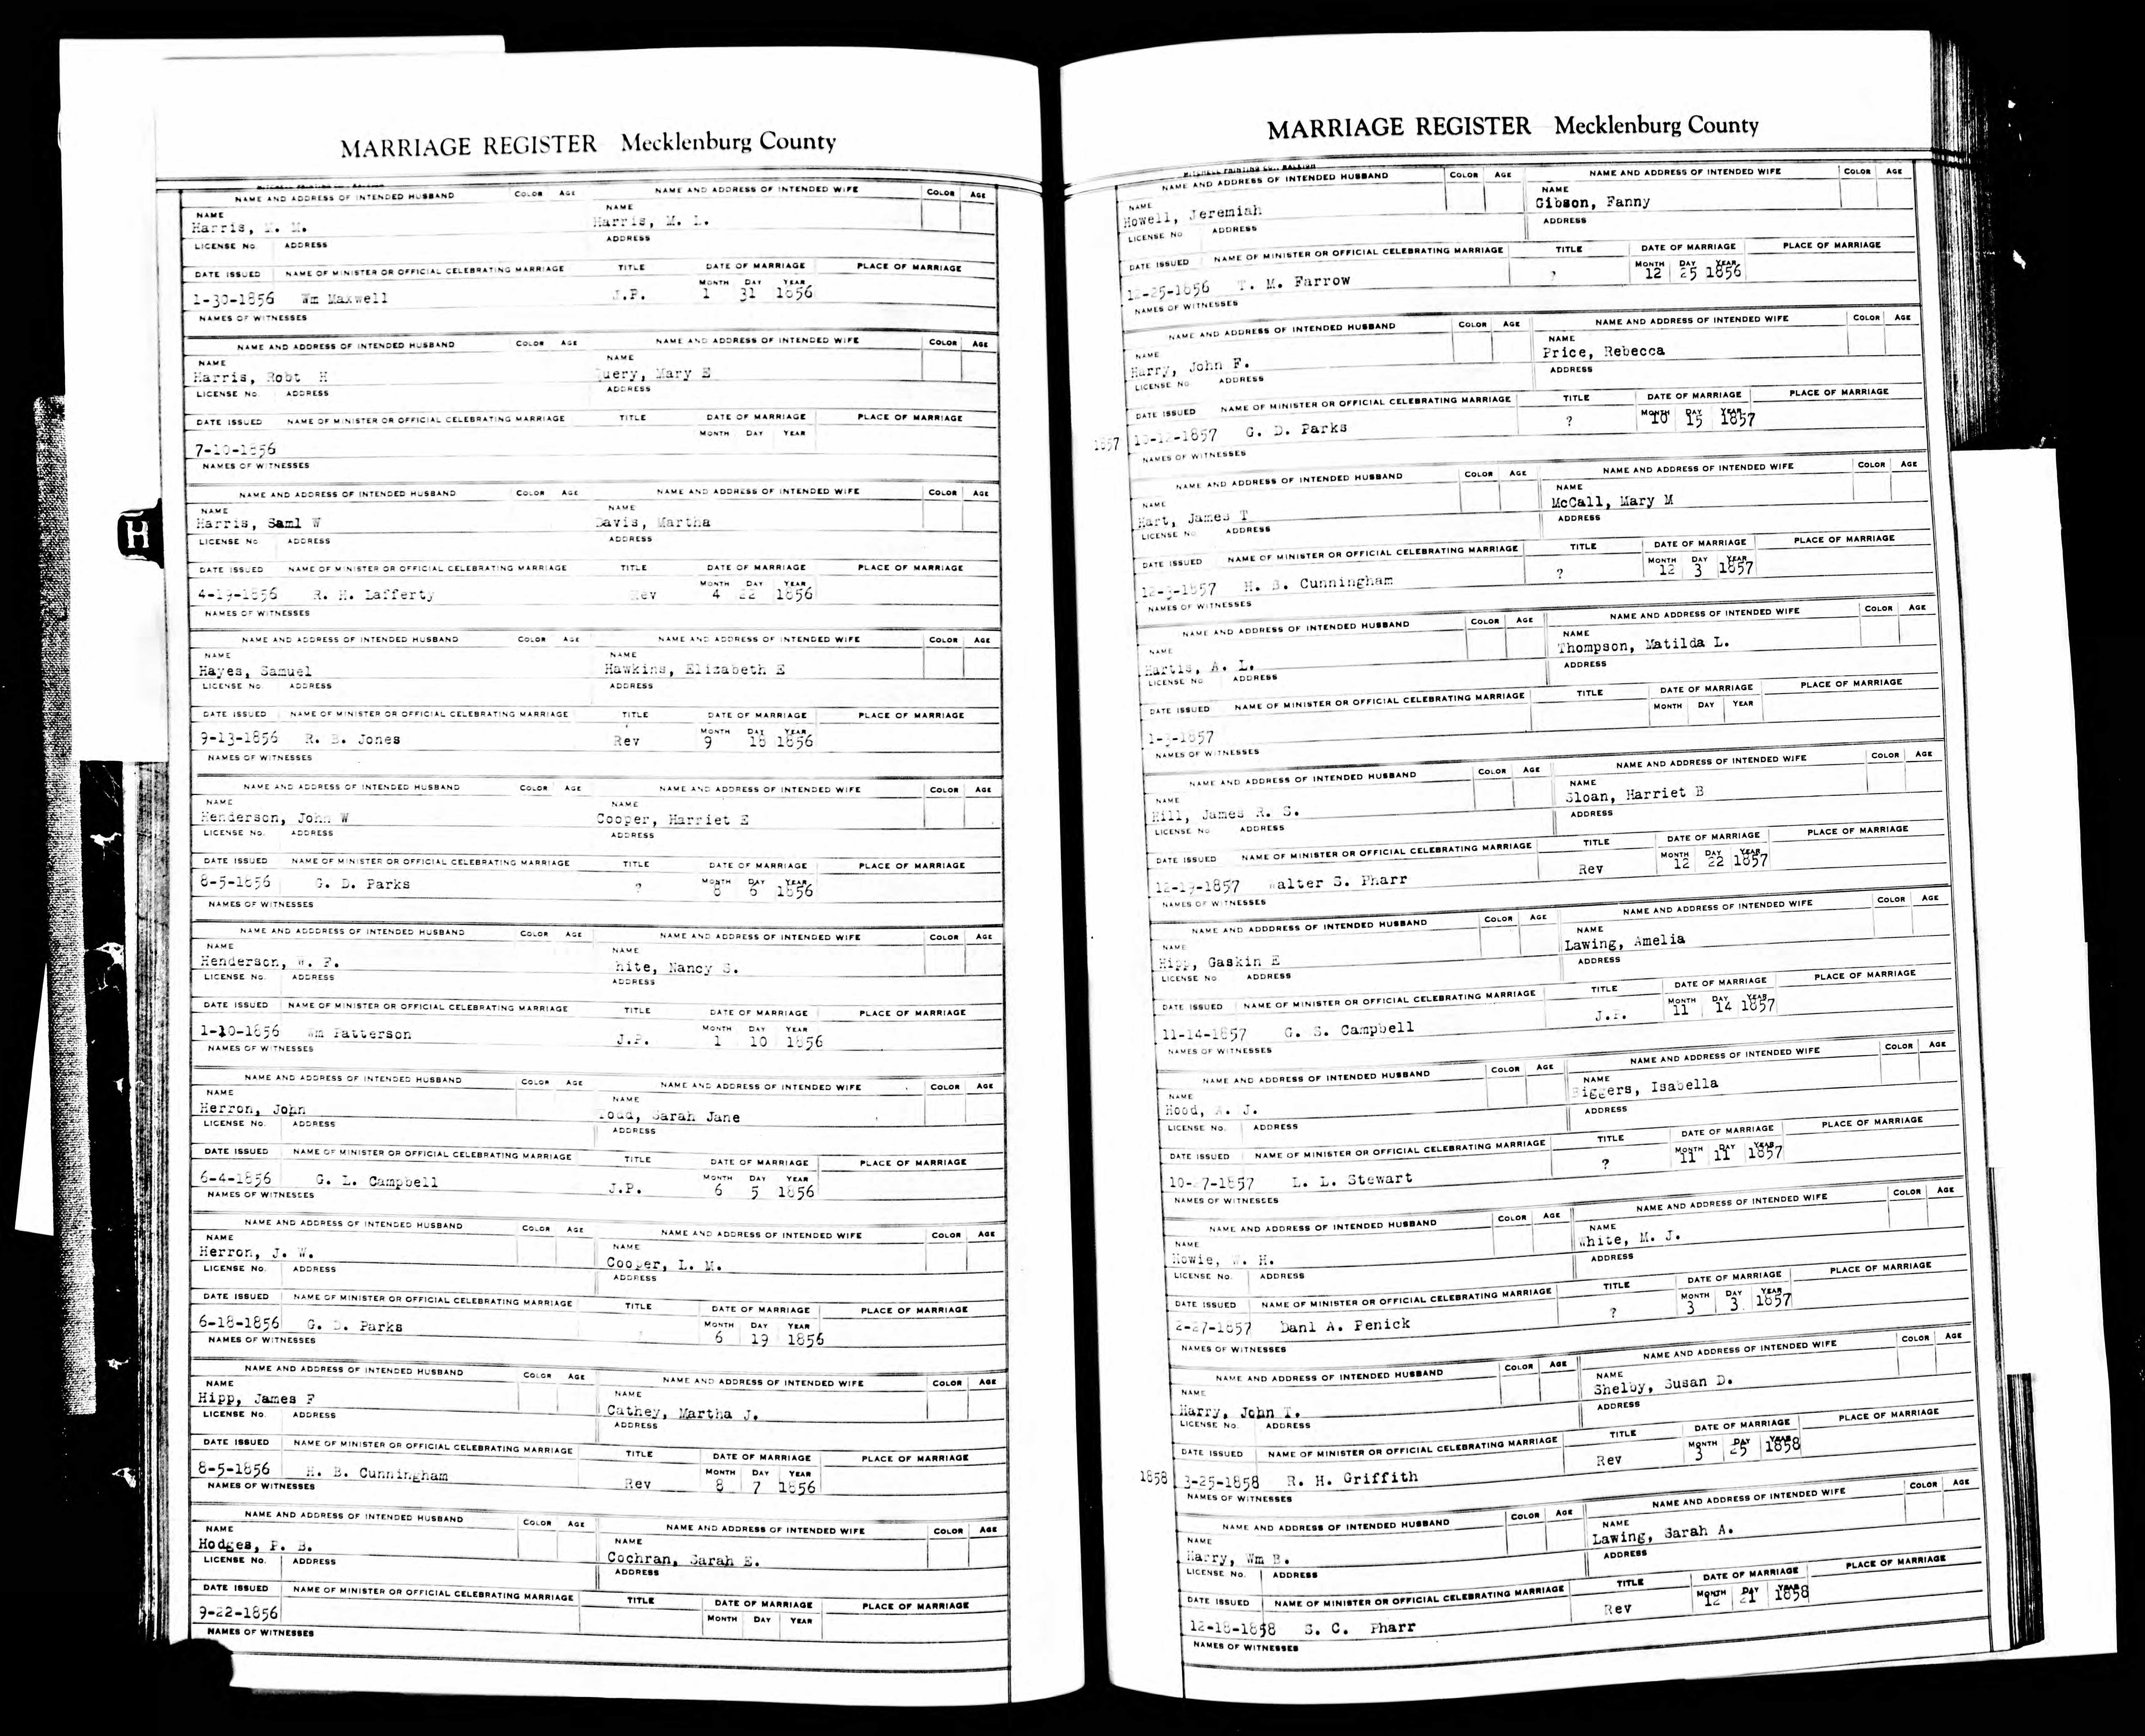 MARRIAGE REGISTER Mecklenburg County
NAME AND ADDRESS OF INTENDED HUSBAND COLOR AGE NAME AND ADDRESS OF INTENDED WIFE COLOR AGE
NAME NAME
Harris, M. M. Harris, M. L.
LICENSE No. ADDRESS ADDRESS
DATE ISSUED NAME OF MINISTER OR OFFICIAL CELEBRATING MARRIAGE TITLE DATE OF MARRIAGE PLACE OF MARRIAGE
MONTH DAY YEAR
1-30-1856 Wm Maxwell J.P. 1 31 1856
NAMES OF WITNESSES
NAME AND ADDRESS OF INTENDED HUSBAND COLOR AGE NAME AND ADDRESS OF INTENDED WIFE COLOR AGE
NAME NAME
Harris, Robt H Query, Mary E
LICENSE No. ADDRESS ADDRESS
DATE ISSUED NAME OF MINISTER OR OFFICIAL CELEBRATING MARRIAGE TITLE DATE OF MARRIAGE PLACE OF MARRIAGE
MONTH DAY YEAR
7-10-1856
NAMES OF WITNESSES
NAME AND ADDRESS OF INTENDED HUSBAND COLOR AGE NAME AND ADDRESS OF INTENDED WIFE COLOR AGE
NAME NAME
Harris, Saml W Davis, Martha
LICENSE No. ADDRESS ADDRESS
DATE ISSUED NAME OF MINISTER OR OFFICIAL CELEBRATING MARRIAGE TITLE DATE OF MARRIAGE PLACE OF MARRIAGE
MONTH DAY YEAR
4-19-1856 R. H. Lafferty Rev 4 22 1856
NAMES OF WITNESSES
H
NAME AND ADDRESS OF INTENDED HUSBAND COLOR AGE NAME AND ADDRESS OF INTENDED WIFE COLOR AGE
NAME NAME
Hayes, Samuel Hawkins, Elizabeth E
LICENSE No. ADDRESS ADDRESS
DATE ISSUED NAME OF MINISTER OR OFFICIAL CELEBRATING MARRIAGE TITLE DATE OF MARRIAGE PLACE OF MARRIAGE
MONTH DAY YEAR
9-13-1856 R. B. Jones Rev 9 18 1856
NAMES OF WITNESSES
NAME AND ADDRESS OF INTENDED HUSBAND COLOR AGE NAME AND ADDRESS OF INTENDED WIFE COLOR AGE
NAME NAME
Henderson, John W Cooper, Harriet E
LICENSE No. ADDRESS ADDRESS
DATE ISSUED NAME OF MINISTER OR OFFICIAL CELEBRATING MARRIAGE TITLE DATE OF MARRIAGE PLACE OF MARRIAGE
MONTH DAY YEAR
8-5-1856 G. D. Parks ? 8 6 1856
NAMES OF WITNESSES
NAME AND ADDDRESS OF INTENDED HUSBAND COLOR AGE NAME AND ADDRESS OF INTENDED WIFE COLOR AGE
NAME NAME
Henderson, W. F. hite, Nancy S.
LICENSE No. ADDRESS ADDRESS
DATE ISSUED NAME OF MINISTER OR OFFICIAL CELEBRATING MARRIAGE TITLE DATE OF MARRIAGE PLACE OF MARRIAGE
MONTH DAY YEAR
1-10-1856 Wm Patterson J.P. 1 10 1856
NAMES OF WITNESSES
NAME AND ADDRESS OF INTENDED HUSBAND COLOR AGE NAME AND ADDRESS OF INTENDED WIFE COLOR AGE
NAME NAME
Herron, John Todd, Sarah Jane
LICENSE No. ADDRESS ADDRESS
DATE ISSUED NAME OF MINISTER OR OFFICIAL CELEBRATING MARRIAGE TITLE DATE OF MARRIAGE PLACE OF MARRIAGE
MONTH DAY YEAR
6-4-1856 G. L. Campbell J.P. 6 5 1856
NAMES OF WITNESSES
NAME AND ADDRESS OF INTENDED HUSBAND COLOR AGE NAME AND ADDRESS OF INTENDED WIFE COLOR AGE
NAME NAME
Herron, J. W. Cooper, L. M.
LICENSE No. ADDRESS ADDRESS
DATE ISSUED NAME OF MINISTER OR OFFICIAL CELEBRATING MARRIAGE TITLE DATE OF MARRIAGE PLACE OF MARRIAGE
MONTH DAY YEAR
6-18-1856 G. D. Parks 6 19 1856
NAMES OF WITNESSES
NAME AND ADDRESS OF INTENDED HUSBAND COLOR AGE NAME AND ADDRESS OF INTENDED WIFE COLOR AGE
NAME NAME
Hipp, James F Cathey, Martha J.
LICENSE No. ADDRESS ADDRESS
DATE ISSUED NAME OF MINISTER OR OFFICIAL CELEBRATING MARRIAGE TITLE DATE OF MARRIAGE PLACE OF MARRIAGE
MONTH DAY YEAR
8-5-1856 H. B. Cunningham Rev 8 7 1856
NAMES OF WITNESSES
NAME AND ADDRESS OF INTENDED HUSBAND COLOR AGE NAME AND ADDRESS OF INTENDED WIFE COLOR AGE
NAME NAME
Hodges, P. B. Cochran, Sarah E.
LICENSE No. ADDRESS ADDRESS
DATE ISSUED NAME OF MINISTER OR OFFICIAL CELEBRATING MARRIAGE TITLE DATE OF MARRIAGE PLACE OF MARRIAGE
MONTH DAY YEAR
9-22-1856
NAMES OF WITNESSES
MARRIAGE REGISTER Mecklenburg County
MITCHELL PRINTING CO., RALEIGH
NAME AND ADDRESS OF INTENDED HUSBAND COLOR AGE NAME AND ADDRESS OF INTENDED WIFE COLOR AGE
NAME NAME
Howell, Jeremiah Gibson, Fanny
LICENSE No ADDRESS ADDRESS
DATE ISSUED NAME OF MINISTER OR OFFICIAL CELEBRATING MARRIAGE TITLE DATE OF MARRIAGE PLACE OF MARRIAGE
MONTH DAY YEAR
12-25-1856 T. M. Farrow ? 12 25 1856
NAMES OF WITNESSES
NAME AND ADDRESS OF INTENDED HUSBAND COLOR AGE NAME AND ADDRESS OF INTENDED WIFE COLOR AGE
NAME NAME
Harry, John F. Price, Rebecca
LICENSE No. ADDRESS ADDRESS
DATE ISSUED NAME OF MINISTER OR OFFICIAL CELEBRATING MARRIAGE TITLE DATE OF MARRIAGE PLACE OF MARRIAGE
MONTH DAY YEAR
1857 10-12-1857 G. D. Parks ? 10 15 1857
NAMES OF WITNESSES
NAME AND ADDRESS OF INTENDED HUSBAND COLOR AGE NAME AND ADDRESS OF INTENDED WIFE COLOR AGE
NAME NAME
Hart, James T McCall, Mary M
LICENSE No. ADDRESS ADDRESS
DATE ISSUED NAME OF MINISTER OR OFFICIAL CELEBRATING MARRIAGE TITLE DATE OF MARRIAGE PLACE OF MARRIAGE
MONTH DAY YEAR
12-3-1857 H. B. Cunningham ? 12 3 1857
NAMES OF WITNESSES
NAME AND ADDRESS OF INTENDED HUSBAND COLOR AGE NAME AND ADDRESS OF INTENDED WIFE COLOR AGE
NAME NAME
Hartis, A. L. Thompson, Matilda L.
LICENSE No ADDRESS ADDRESS
DATE ISSUED NAME OF MINISTER OR OFFICIAL CELEBRATING MARRIAGE TITLE DATE OF MARRIAGE PLACE OF MARRIAGE
MONTH DAY YEAR
1-3-1857
NAMES OF WITNESSES
NAME AND ADDRESS OF INTENDED HUSBAND COLOR AGE NAME AND ADDRESS OF INTENDED WIFE COLOR AGE
NAME NAME
Hill, James R. S. Sloan, Harriet B
LICENSE No ADDRESS ADDRESS
DATE ISSUED NAME OF MINISTER OR OFFICIAL CELEBRATING MARRIAGE TITLE DATE OF MARRIAGE PLACE OF MARRIAGE
MONTH DAY YEAR
12-19-1857 Walter S. Pharr Rev 12 22 1857
NAMES OF WITNESSES
NAME AND ADDDRESS OF INTENDED HUSBAND COLOR AGE NAME AND ADDRESS OF INTENDED WIFE COLOR AGE
NAME NAME
Hipp, Gaskin E Lawing, Amelia
LICENSE No ADDRESS ADDRESS
DATE ISSUED NAME OF MINISTER OR OFFICIAL CELEBRATING MARRIAGE TITLE DATE OF MARRIAGE PLACE OF MARRIAGE
MONTH DAY YEAR
11-14-1857 G. S. Campbell J.P. 11 14 1857
NAMES OF WITNESSES
NAME AND ADDRESS OF INTENDED HUSBAND COLOR AGE NAME AND ADDRESS OF INTENDED WIFE COLOR AGE
NAME NAME
Hood, A. J. Biggers, Isabella
LICENSE No. ADDRESS ADDRESS
DATE ISSUED NAME OF MINISTER OR OFFICIAL CELEBRATING MARRIAGE TITLE DATE OF MARRIAGE PLACE OF MARRIAGE
MONTH DAY YEAR
10- 7-1857 L. L. Stewart ? 11 11 1857
NAMES OF WITNESSES
NAME AND ADDRESS OF INTENDED HUSBAND COLOR AGE NAME AND ADDRESS OF INTENDED WIFE COLOR AGE
NAME NAME
Howie, W. H. White, M. J.
LICENSE No. ADDRESS ADDRESS
DATE ISSUED NAME OF MINISTER OR OFFICIAL CELEBRATING MARRIAGE TITLE DATE OF MARRIAGE PLACE OF MARRIAGE
MONTH DAY YEAR
2-27-1857 Danl A. Penick ? 3 3 1857
NAMES OF WITNESSES
NAME AND ADDRESS OF INTENDED HUSBAND COLOR AGE NAME AND ADDRESS OF INTENDED WIFE COLOR AGE
NAME NAME
Harry, John T. Shelby, Susan D.
LICENSE No. ADDRESS ADDRESS
DATE ISSUED NAME OF MINISTER OR OFFICIAL CELEBRATING MARRIAGE TITLE DATE OF MARRIAGE PLACE OF MARRIAGE
MONTH DAY YEAR
1858 3-25-1858 R. H. Griffith Rev 3 25 1858
NAMES OF WITNESSES
NAME AND ADDRESS OF INTENDED HUSBAND COLOR AGE NAME AND ADDRESS OF INTENDED WIFE COLOR AGE
NAME NAME
Harry, Wm B. Lawing, Sarah A.
LICENSE No. ADDRESS ADDRESS
DATE ISSUED NAME OF MINISTER OR OFFICIAL CELEBRATING MARRIAGE TITLE DATE OF MARRIAGE PLACE OF MARRIAGE
MONTH DAY YEAR
12-18-1858 S. C. Pharr Rev 12 21 1858
NAMES OF WITNESSES